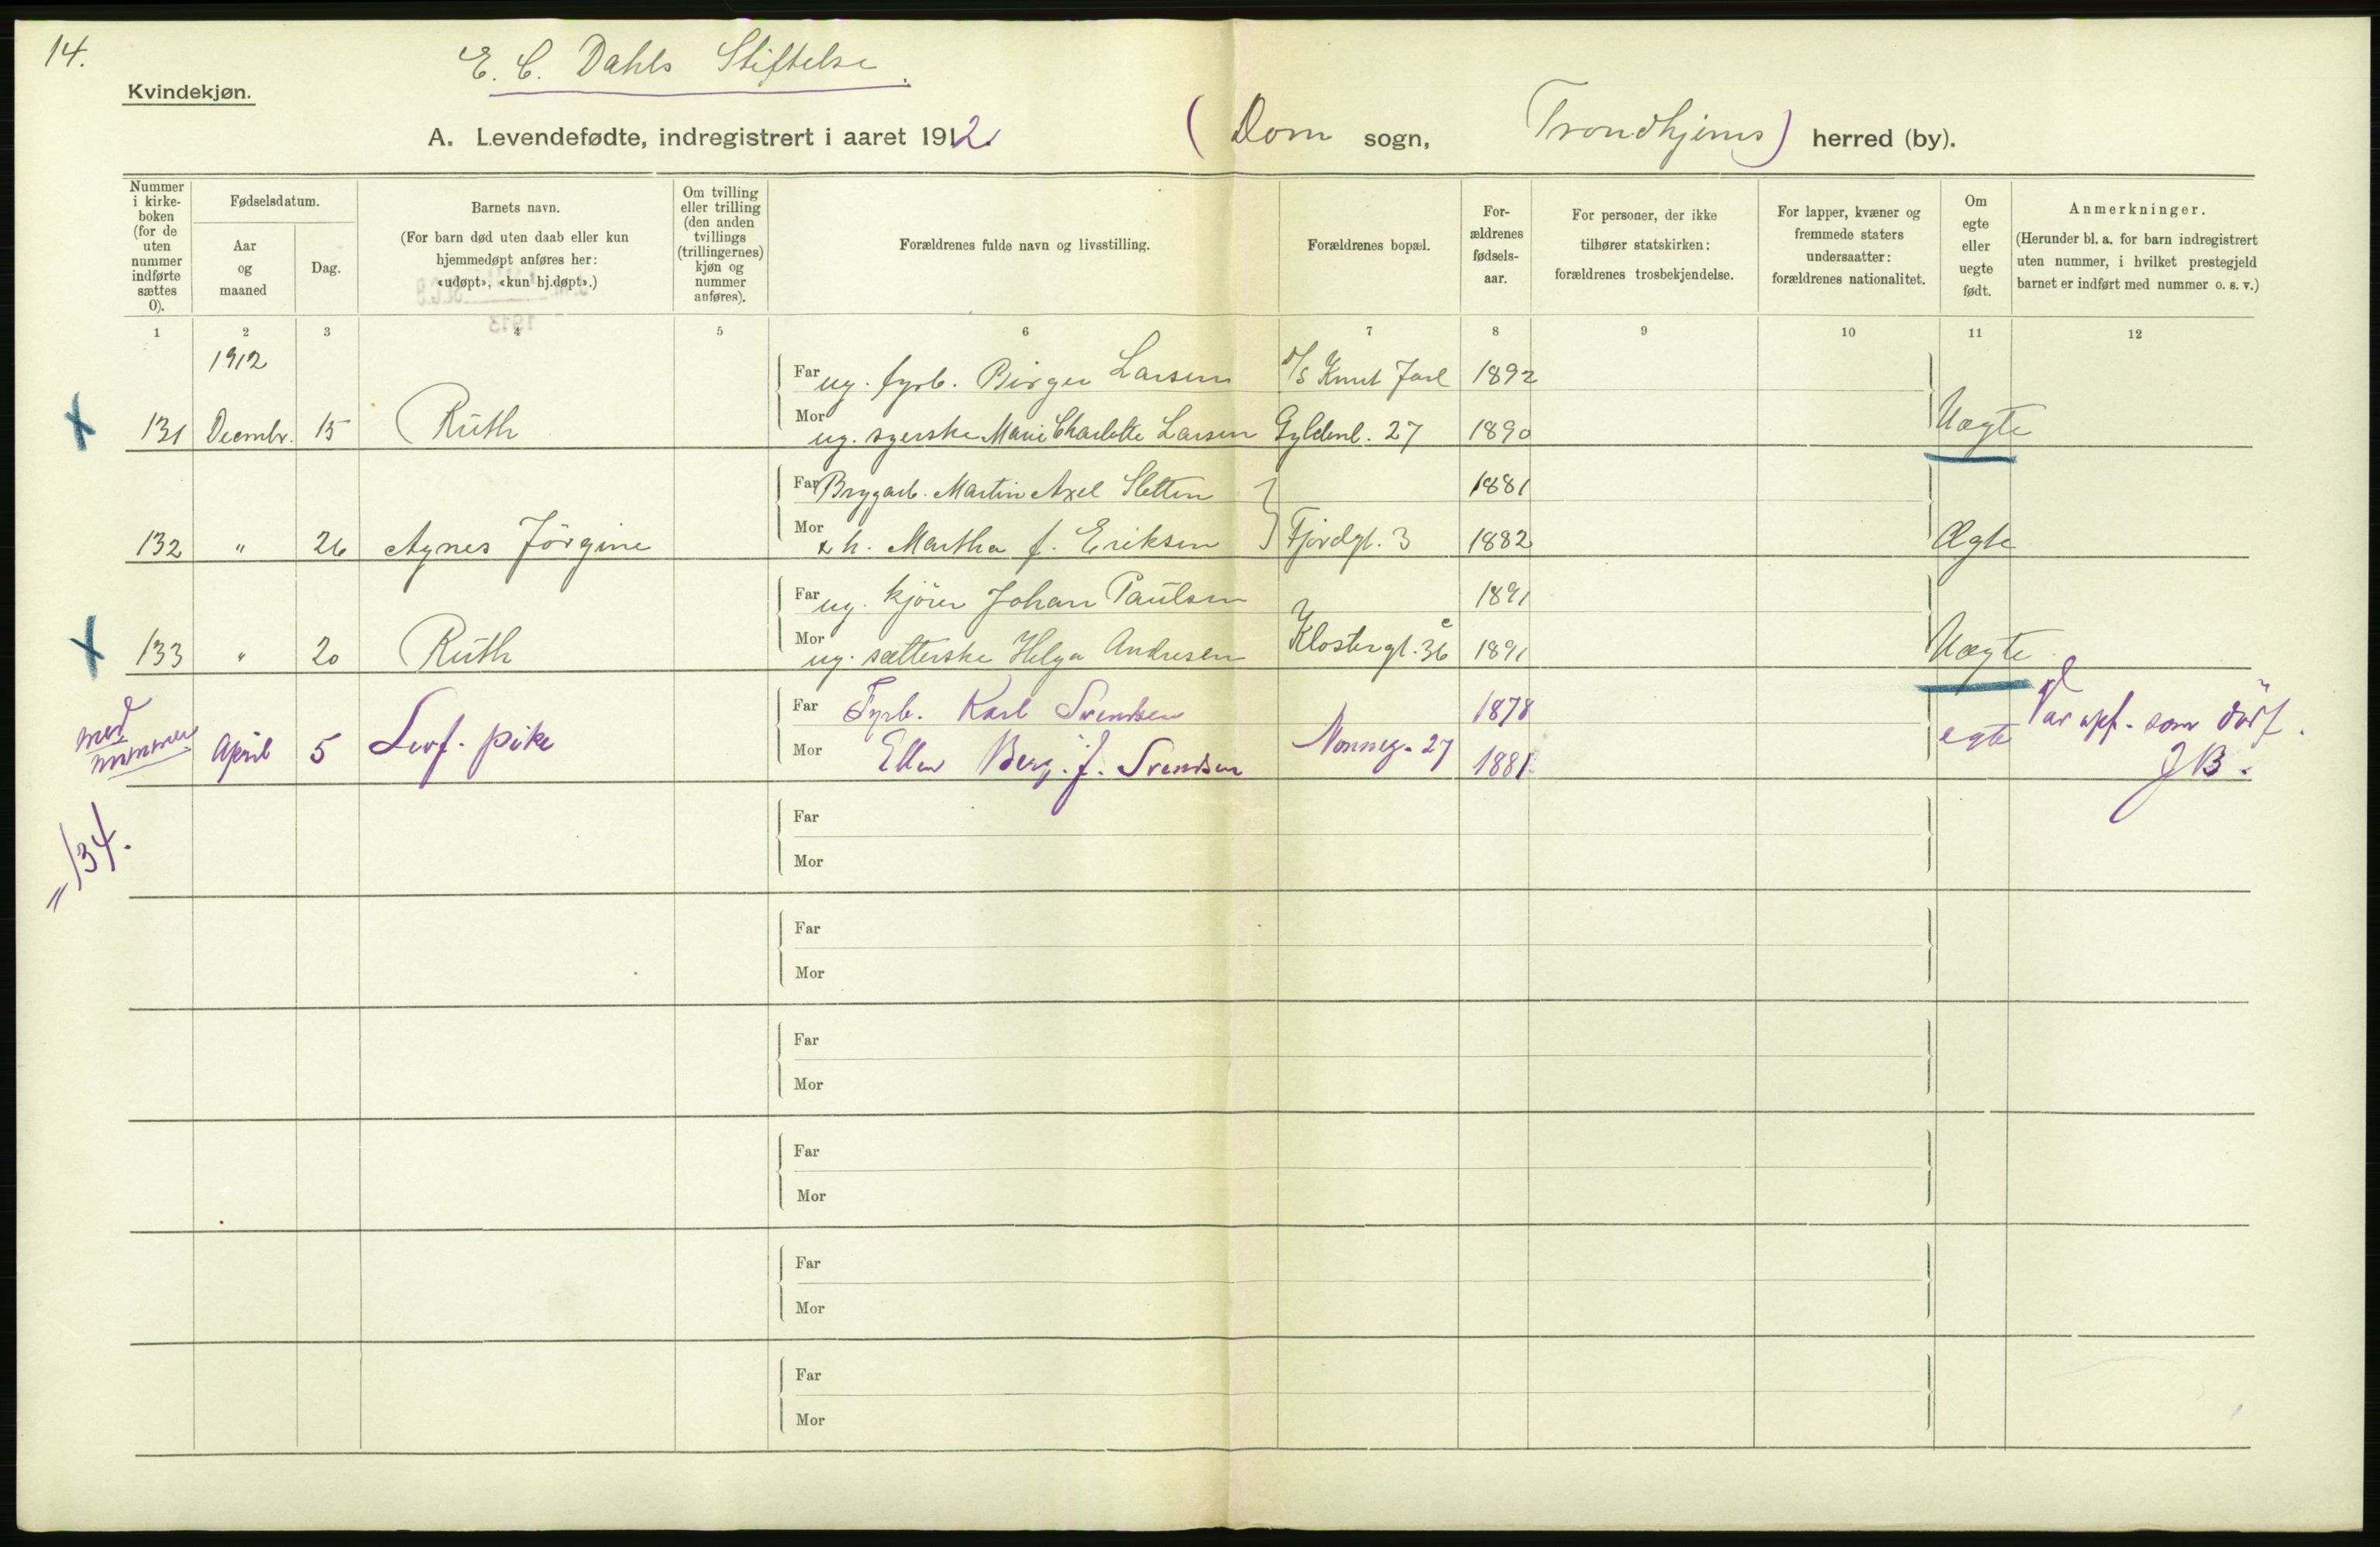 14.
E. C. Dahls Stiftelse.
Kvindekjøn.
A. Levendefødte, indregistrert i aaret 1912. (Dom sogn, Trondhjems) herred (by).
Nummer i kirke-boken (for de uten nummer indførte sættes 0).
Fødselsdatum.
Aar og maaned
Dag.
Barnets navn.
(For barn død uten daab eller kun hjemmedøpt anføres her: «udøpt», «kun hj.døpt».)
Om tvilling eller trilling (den anden tvillings (trillingernes) kjøn og nummer anføres).
Forældrenes fulde navn og livsstilling.
Forældrenes bopæl.
For-ældrenes fødsels-aar.
For personer, der ikke tilhører statskirken: forældrenes trosbekjendelse.
For lapper, kvæner og fremmede staters undersaatter: forældrenes nationalitet.
Om egte eller uegte født.
Anmerkninger.
(Herunder bl. a. for barn indregistrert uten nummer, i hvilket prestegjeld barnet er indført med nummer o. s. v.)
1 2 3 4 5 6 7 8 9 10 11 12
1912
Far ug. fyrb. Birger Larsen D/S Knut Jarl 1892
131 Decembr. 15 Ruth Mor ug. syerske Marie Charlotte Larsen Gyldenl. 27 1890 Uægte
Far Bryggarb. Martin Axel Sletten 1881
132 " 26 Agnes Jörgine Mor h. Martha f. Eriksen Fjordgt. 3 1882 Ægte
Far ug. kjører Johan Paulsen 1891
133 " 20 Ruth Mor ug. sætterske Helga Andresen Klostergt. 36 c 1891 Uægte
Far Fyrb. Karl Svendsen 1878
med nummer April 5 Levf. pike Mor Ellen Berg. f. Svendsen Nonneg. 27 1881. egte Var opf. som dödf.
JB.
" 134.
Far
Mor
Far
Mor
Far
Mor
Far
Mor
Far
Mor
Far
Mor